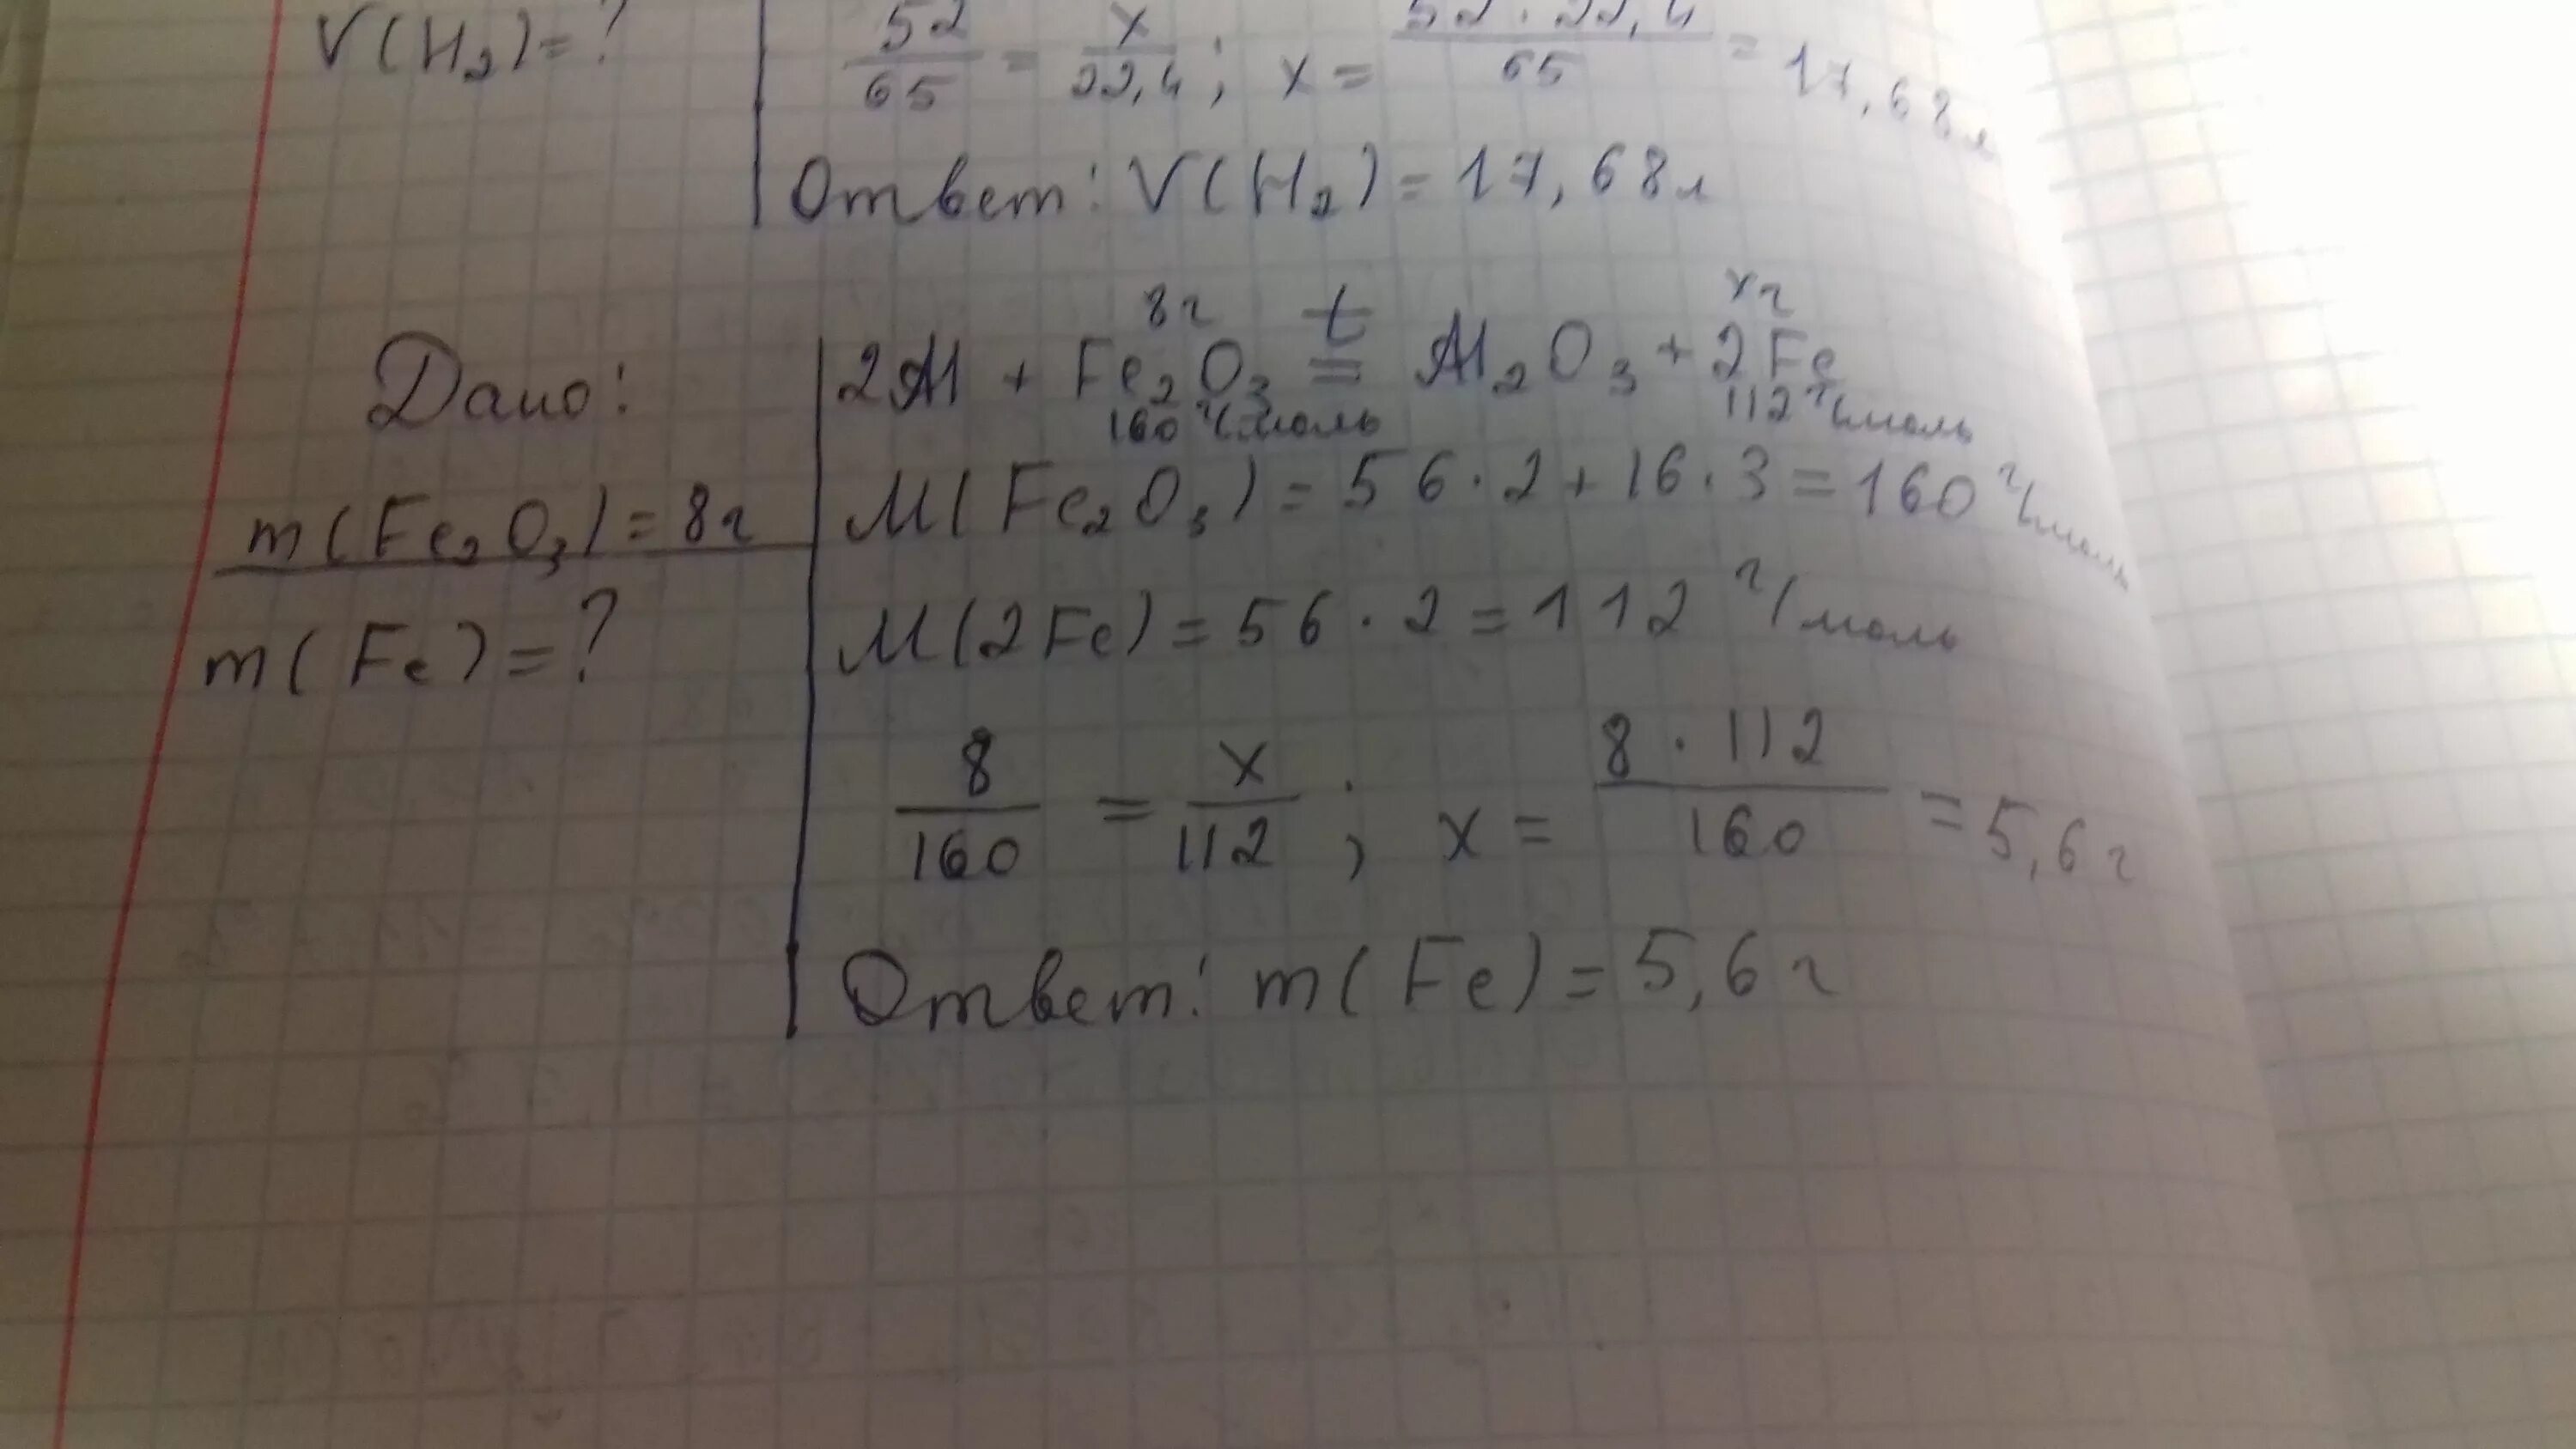 V(H₂)=?
52/65 = x/22,4; x = 52·22,4/65 = 17,68л
Ответ: V(H₂)=17,68л
Дано:
m(Fe₂O₃)=8г
m(Fe)=?
8г t xг
2Al + Fe₂O₃ = Al₂O₃ + 2Fe
160 г/моль 112 г/моль
M(Fe₂O₃)=56·2+16·3=160 г/моль
M(2Fe)=56·2=112 г/моль
8/160 = x/112; x = 8·112/160 = 5,6г
Ответ: m(Fe)=5,6г